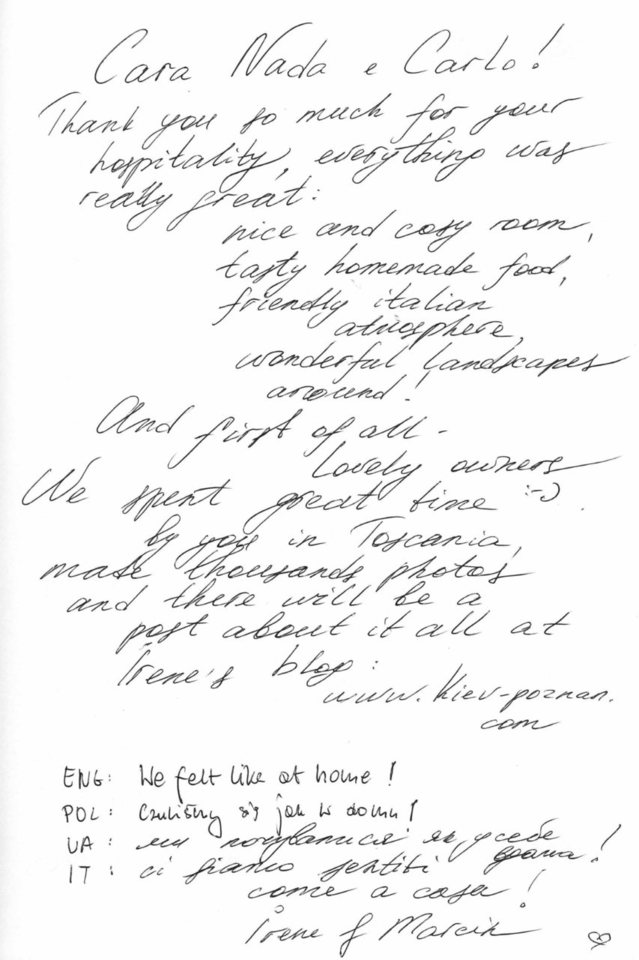 Cara Nada e Carlo!
Thank you so much for your
hospitality, everything was
really great:
nice and cosy room,
tasty homemade food,
friendly italian
atmosphere,
wonderful landscapes
around!
And first of all -
lovely owners
We spent great time :-)
by you in Toscania,
made thousands photos
and there will be a
post about it all at
Irene's blog:
www.kiev-poznan.
com
ENG: We felt like at home!
POL: Czuliśmy się jak w domu!
UA: ми почувалися як у себе
вдома!
IT: ci siamo sentiti
come a casa!
Irene & Marcin